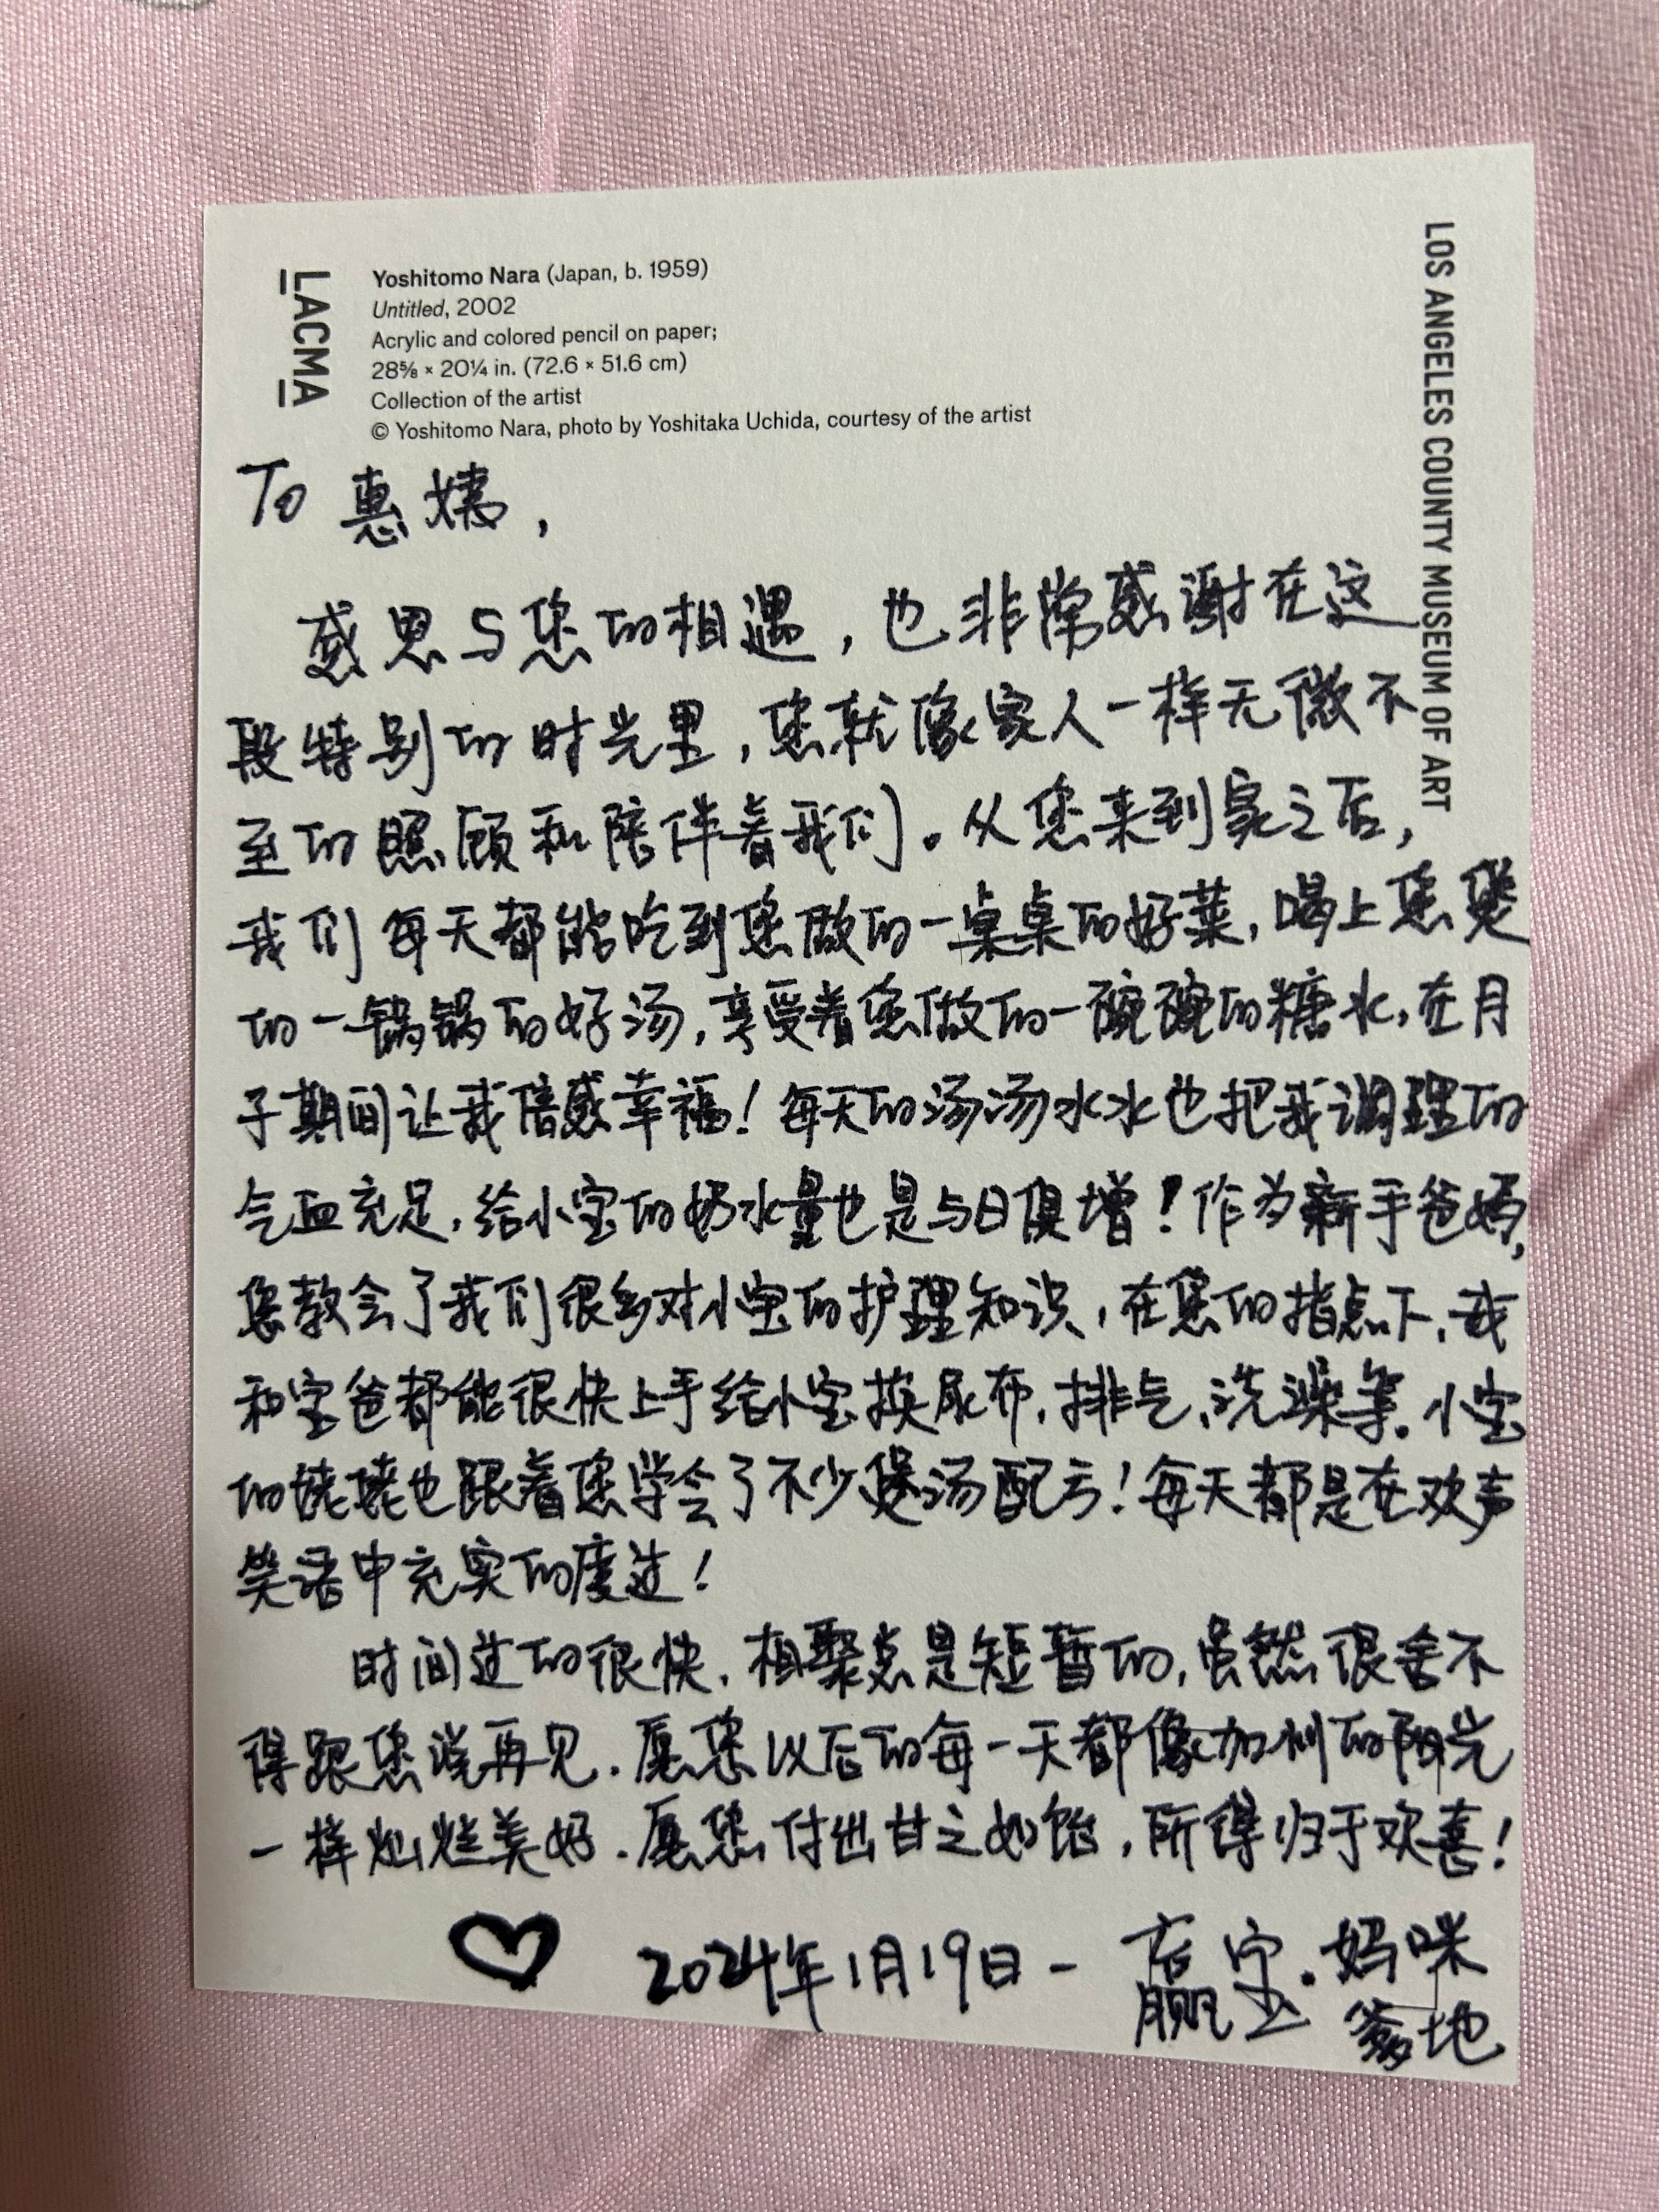 LACMA
Yoshitomo Nara (Japan, b. 1959)
Untitled, 2002
Acrylic and colored pencil on paper;
28⅝ × 20¼ in. (72.6 × 51.6 cm)
Collection of the artist
© Yoshitomo Nara, photo by Yoshitaka Uchida, courtesy of the artist
LOS ANGELES COUNTY MUSEUM OF ART
To 惠姨，
感恩与您的相遇，也非常感谢在这
段特别的时光里，您就像家人一样无微不
至的照顾和陪伴着我们。从您来到家之后，
我们每天都能吃到您做的一桌桌的好菜，喝上您煲
的一锅锅的好汤，享受着您做的一碗碗的糖水，在月
子期间让我倍感幸福！每天的汤汤水水也把我调理的
气血充足，给小宝的奶水量也是与日俱增！作为新手爸妈，
您教会了我们很多对小宝的护理知识，在您的指点下，我
和宝爸都能很快上手给小宝换尿布，排气，洗澡等。小宝
的姥姥也跟着您学会了不少煲汤配方！每天都是在欢声
笑语中充实的度过！
时间过的很快，相聚总是短暂的，虽然很舍不
得跟您说再见．愿您以后的每一天都像加州的阳光
一样灿烂美好．愿您付出甘之如饴，所得归于欢喜！
2024年1月19日 - 赢宝．妈咪
爹地